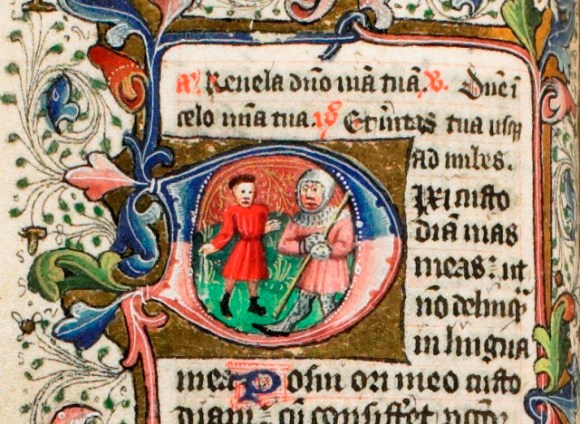 a. Reuela dño uiã tuã. v. Dñe ĩ
celo mĩa tua. Et uĩtas tua usq
Ad nubes.
DIxi custo
diã uias
meas: ut
nõ delinq̃
in lingua
mea Posui ori meo custo
diam: cũ consistet